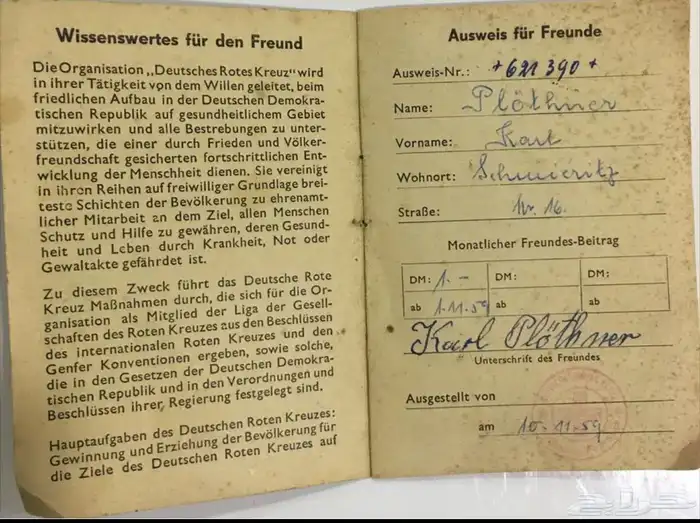 Wissenswertes für den Freund
Die Organisation „Deutsches Rotes Kreuz" wird
in ihrer Tätigkeit von dem Willen geleitet, beim
friedlichen Aufbau in der Deutschen Demokra-
tischen Republik auf gesundheitlichem Gebiet
mitzuwirken und alle Bestrebungen zu unter-
stützen, die einer durch Frieden und Völker-
freundschaft gesicherten fortschrittlichen Ent-
wicklung der Menschheit dienen. Sie vereinigt
in ihren Reihen auf freiwilliger Grundlage brei-
teste Schichten der Bevölkerung zu ehrenamt-
licher Mitarbeit an dem Ziel, allen Menschen
Schutz und Hilfe zu gewähren, deren Gesund-
heit und Leben durch Krankheit, Not oder
Gewaltakte gefährdet ist.
Zu diesem Zweck führt das Deutsche Rote
Kreuz Maßnahmen durch, die sich für die Or-
ganisation als Mitglied der Liga der Gesell-
schaften des Roten Kreuzes aus den Beschlüssen
des internationalen Roten Kreuzes und den
Genfer Konventionen ergeben, sowie solche,
die in den Gesetzen der Deutschen Demokra-
tischen Republik und in den Verordnungen und
Beschlüssen ihrer Regierung festgelegt sind.
Hauptaufgaben des Deutschen Roten Kreuzes:
Gewinnung und Erziehung der Bevölkerung für
die Ziele des Deutschen Roten Kreuzes auf
Ausweis für Freunde
Ausweis-Nr.: *621390*
Name: Plöthner
Vorname: Karl
Wohnort: Schmieritz
Straße: Nr. 16.
Monatlicher Freundes-Beitrag
DM: 1.- DM: DM:
ab 1.11.59 ab ab
Karl Plöthner
Unterschrift des Freundes
Ausgestellt von
am 10.11.59
حراج